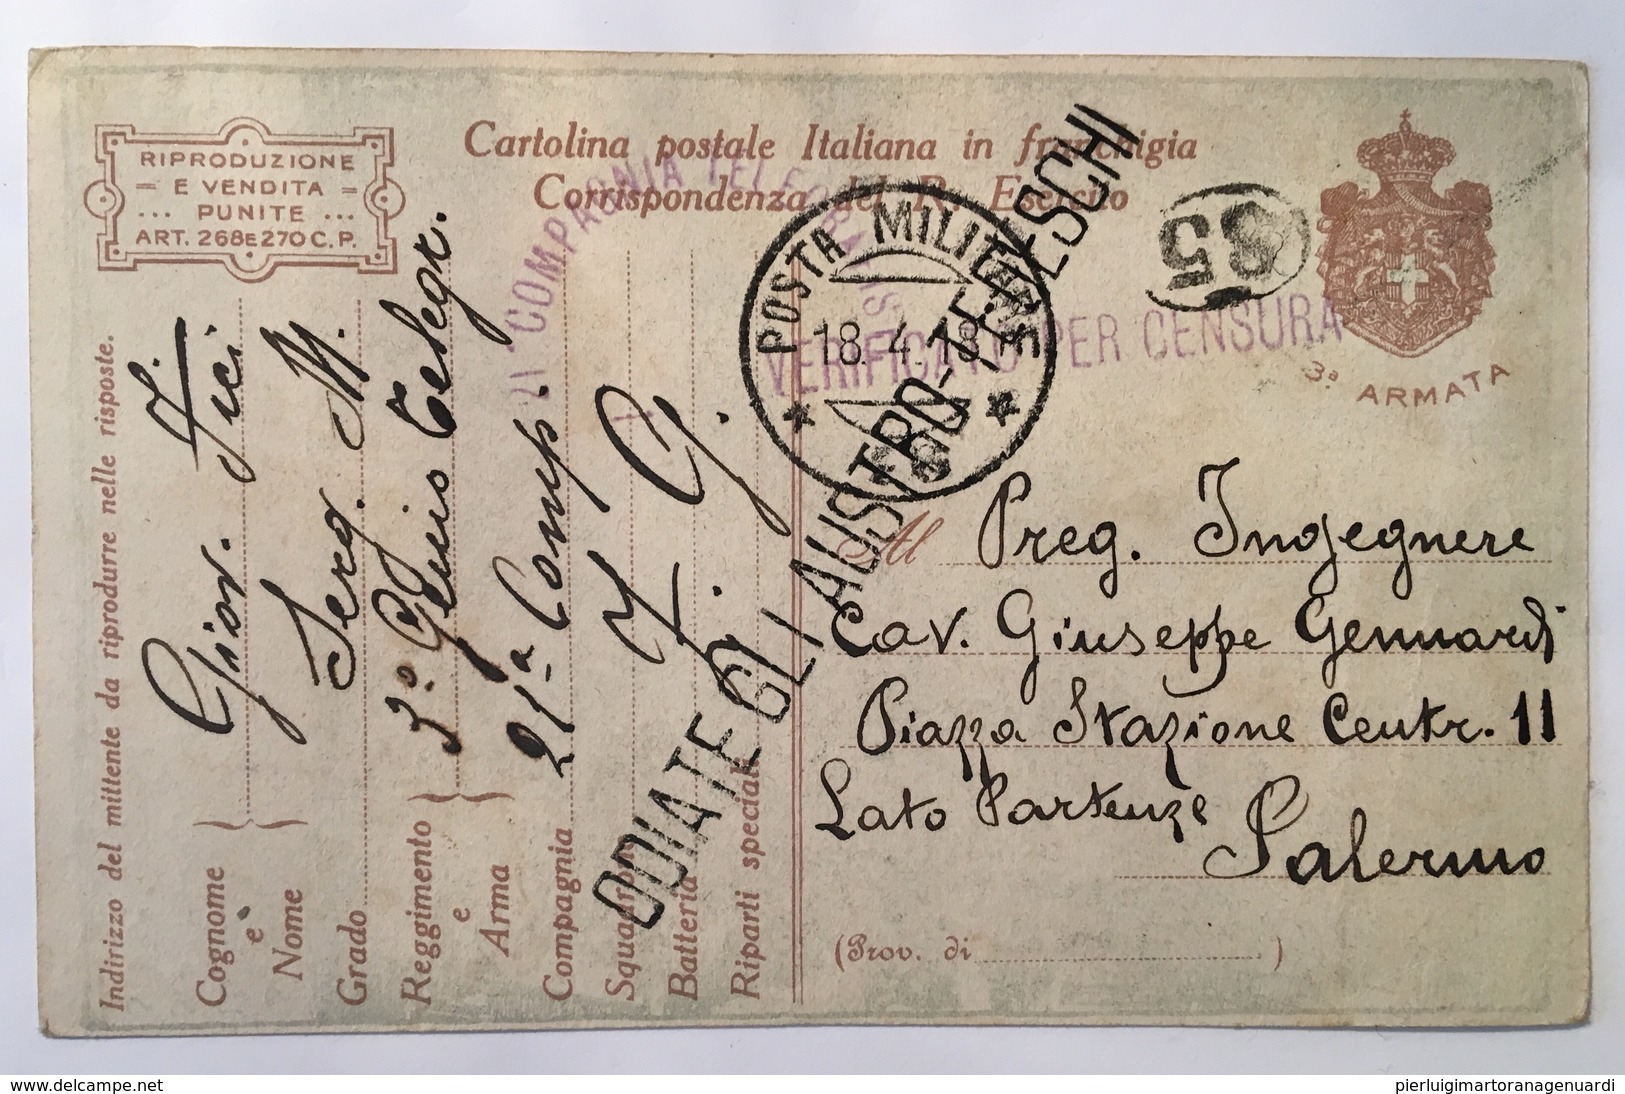 RIPRODUZIONE
= E VENDITA =
... PUNITE ...
ART. 268 E 270 C.P.
Cartolina postale Italiana in franchigia
Corrispondenza del R. Esercito
21 COMPAGNIA TELEGRAFISTI
POSTA MILITARE
18.4.18
VERIFICATO PER CENSURA
85
3ª ARMATA
ODIATE GLI AUSTRO-TEDESCHI
Indirizzo del mittente da riprodurre nelle risposte.
Cognome
e
Nome
Giov.
Grado
Serg. M.
Reggimento
e
Arma
3º Genio Telegr.
Compagnia
21ª Comp.
Squadrone
Z. G.
Batteria
Riparti speciali
Al Preg. Ingegnere
Cav. Giuseppe Gennardi
Piazza Stazione Centr. 11
Lato Partenze
Salerno
(Prov. di )
www.delcampe.net
pierluigimartoranagenuardi